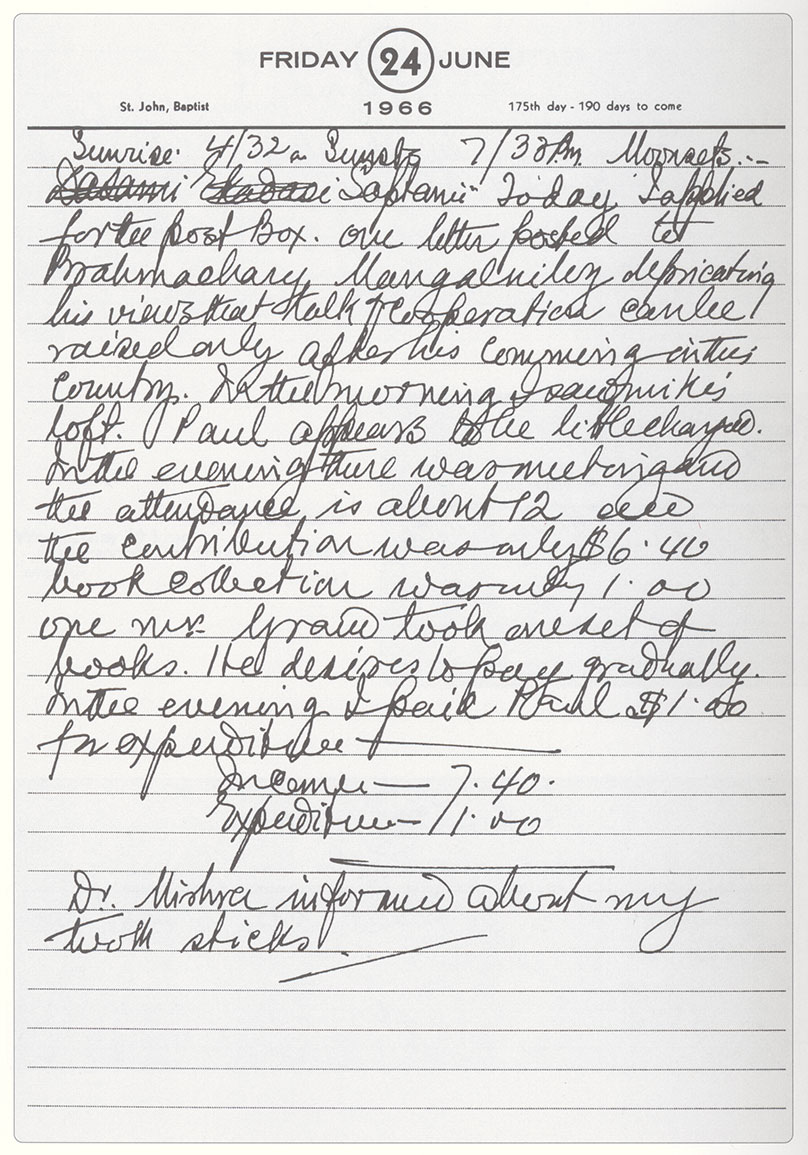 FRIDAY 24 JUNE
St. John, Baptist 1966 175th day - 190 days to come
Sunrise: 4/32 a Sunsets 7/33 P.m. Moonsets...
Dasami Ekadasi Saptami" Today I applied
for the post Box. one letter posted to
Brahmachary Mangalniloy depricating
his views that talk of Cooperation can be
raised only after his comming in this
country. In the morning I saw mikis
loft. Paul appears to be little changed.
In the evening there was meeting and
the attendance is about 12 and
the contribution was only $6.40
book collection was only 1.00
one mr. Grand took one set of
books. He desires to pay gradually.
In the evening I paid Paul $1.00
for expenditure
Income — 7.40.
Expenditure — 1.00
Dr. Mishra informed about my
tooth sticks.